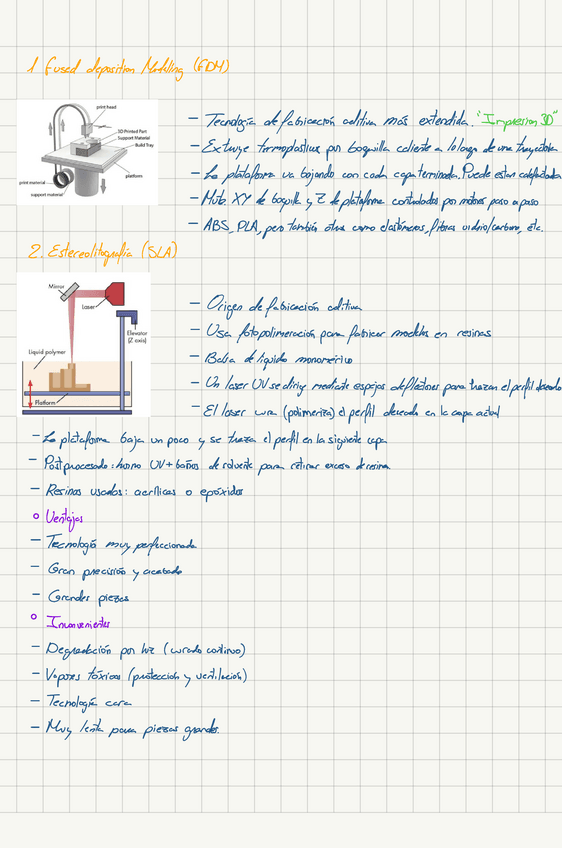 1 Fused deposition Modeling (FDM)
print head
3D Printed Part
Support Material
Build Tray
platform
print material
support material
- Tecnología de fabricación aditiva más extendida. "Impresion 3D"
- Extruye termoplasticos por boquilla caliente a lo largo de una trayectoria
- La plataforma va bajando con cada capa terminada. Puede estar calefactada
- Mvto XY de boquilla y Z de plataforma controlados por motores paso a paso
- ABS, PLA, pero también otros como elastómeros, fibras vidrio/carbono, etc.
2. Estereolitografía (SLA)
Mirrors
Laser
Elevator
(Z axis)
Liquid polymer
Platform
- Origen de fabricación aditiva
- Usa fotopolimeración para fabricar modelos en resinas
- Balsa de líquido monomérico
- Un laser UV se dirige mediante espejos deflectores para trazar el perfil deseado
- El laser cura (polimeriza) el perfil deseado en la capa actual
- La plataforma baja un poco y se traza el perfil en la siguiente capa
- Postprocesado: horno UV + baños de solvente para retirar exceso de resina
- Resinas usadas: acrílicas o epóxidos
o Ventajas
- Tecnología muy perfeccionada
- Gran precisión y acabado
- Grandes piezas
o Inconvenientes
- Degradación por luz (curado continuo)
- Vapores tóxicos (protección y ventilación)
- Tecnología cara
- Muy lenta para piezas grandes.